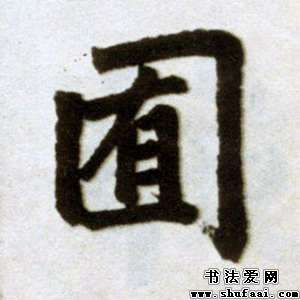 囿
书法爱网
www.shufaai.com